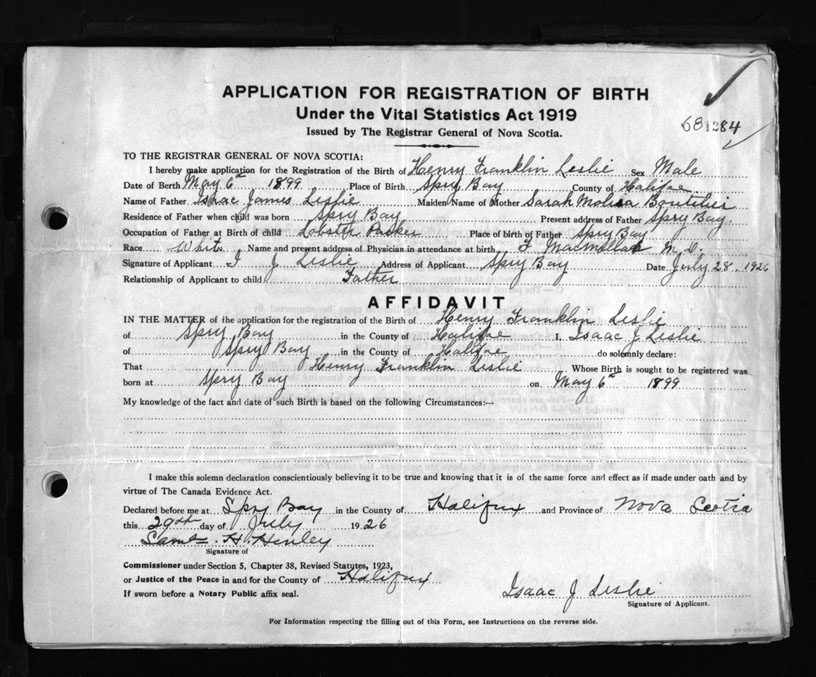 APPLICATION FOR REGISTRATION OF BIRTH
Under the Vital Statistics Act 1919
681284
Issued by The Registrar General of Nova Scotia.
TO THE REGISTRAR GENERAL OF NOVA SCOTIA:
I hereby make application for the Registration of the Birth of Henry Franklin Leslie Sex Male
Date of Birth May 6th 1899 Place of Birth Spry Bay County of Halifax
Name of Father Isaac James Leslie Maiden Name of Mother Sarah Boutilier
Residence of Father when child was born Spry Bay Present address of Father Spry Bay.
Occupation of Father at Birth of child Lobster Packer Place of birth of Father Spry Bay
Race White Name and present address of Physician in attendance at birth F Macmillan M.D.
Signature of Applicant I J Leslie Address of Applicant Spry Bay Date July 28. 1926
Relationship of Applicant to child Father
AFFIDAVIT
IN THE MATTER of the application for the registration of the Birth of Henry Franklin Leslie
of Spry Bay in the County of Halifax I, Isaac J Leslie
of Spry Bay in the County of Halifax do solemnly declare:
That Henry Franklin Leslie Whose Birth is sought to be registered was
born at Spry Bay on May 6th 1899
My knowledge of the fact and date of such Birth is based on the following Circumstances:—
I make this solemn declaration conscientiously believing it to be true and knowing that it is of the same force and effect as if made under oath and by
virtue of The Canada Evidence Act.
Declared before me at Spry Bay in the County of Halifax and Province of Nova Scotia
this day of July 1926
H. Henley
Signature of
Commissioner under Section 5, Chapter 38, Revised Statutes, 1923,
or Justice of the Peace in and for the County of Halifax
If sworn before a Notary Public affix seal.
Isaac J Leslie
Signature of Applicant.
For Information respecting the filling out of this Form, see Instructions on the reverse side.